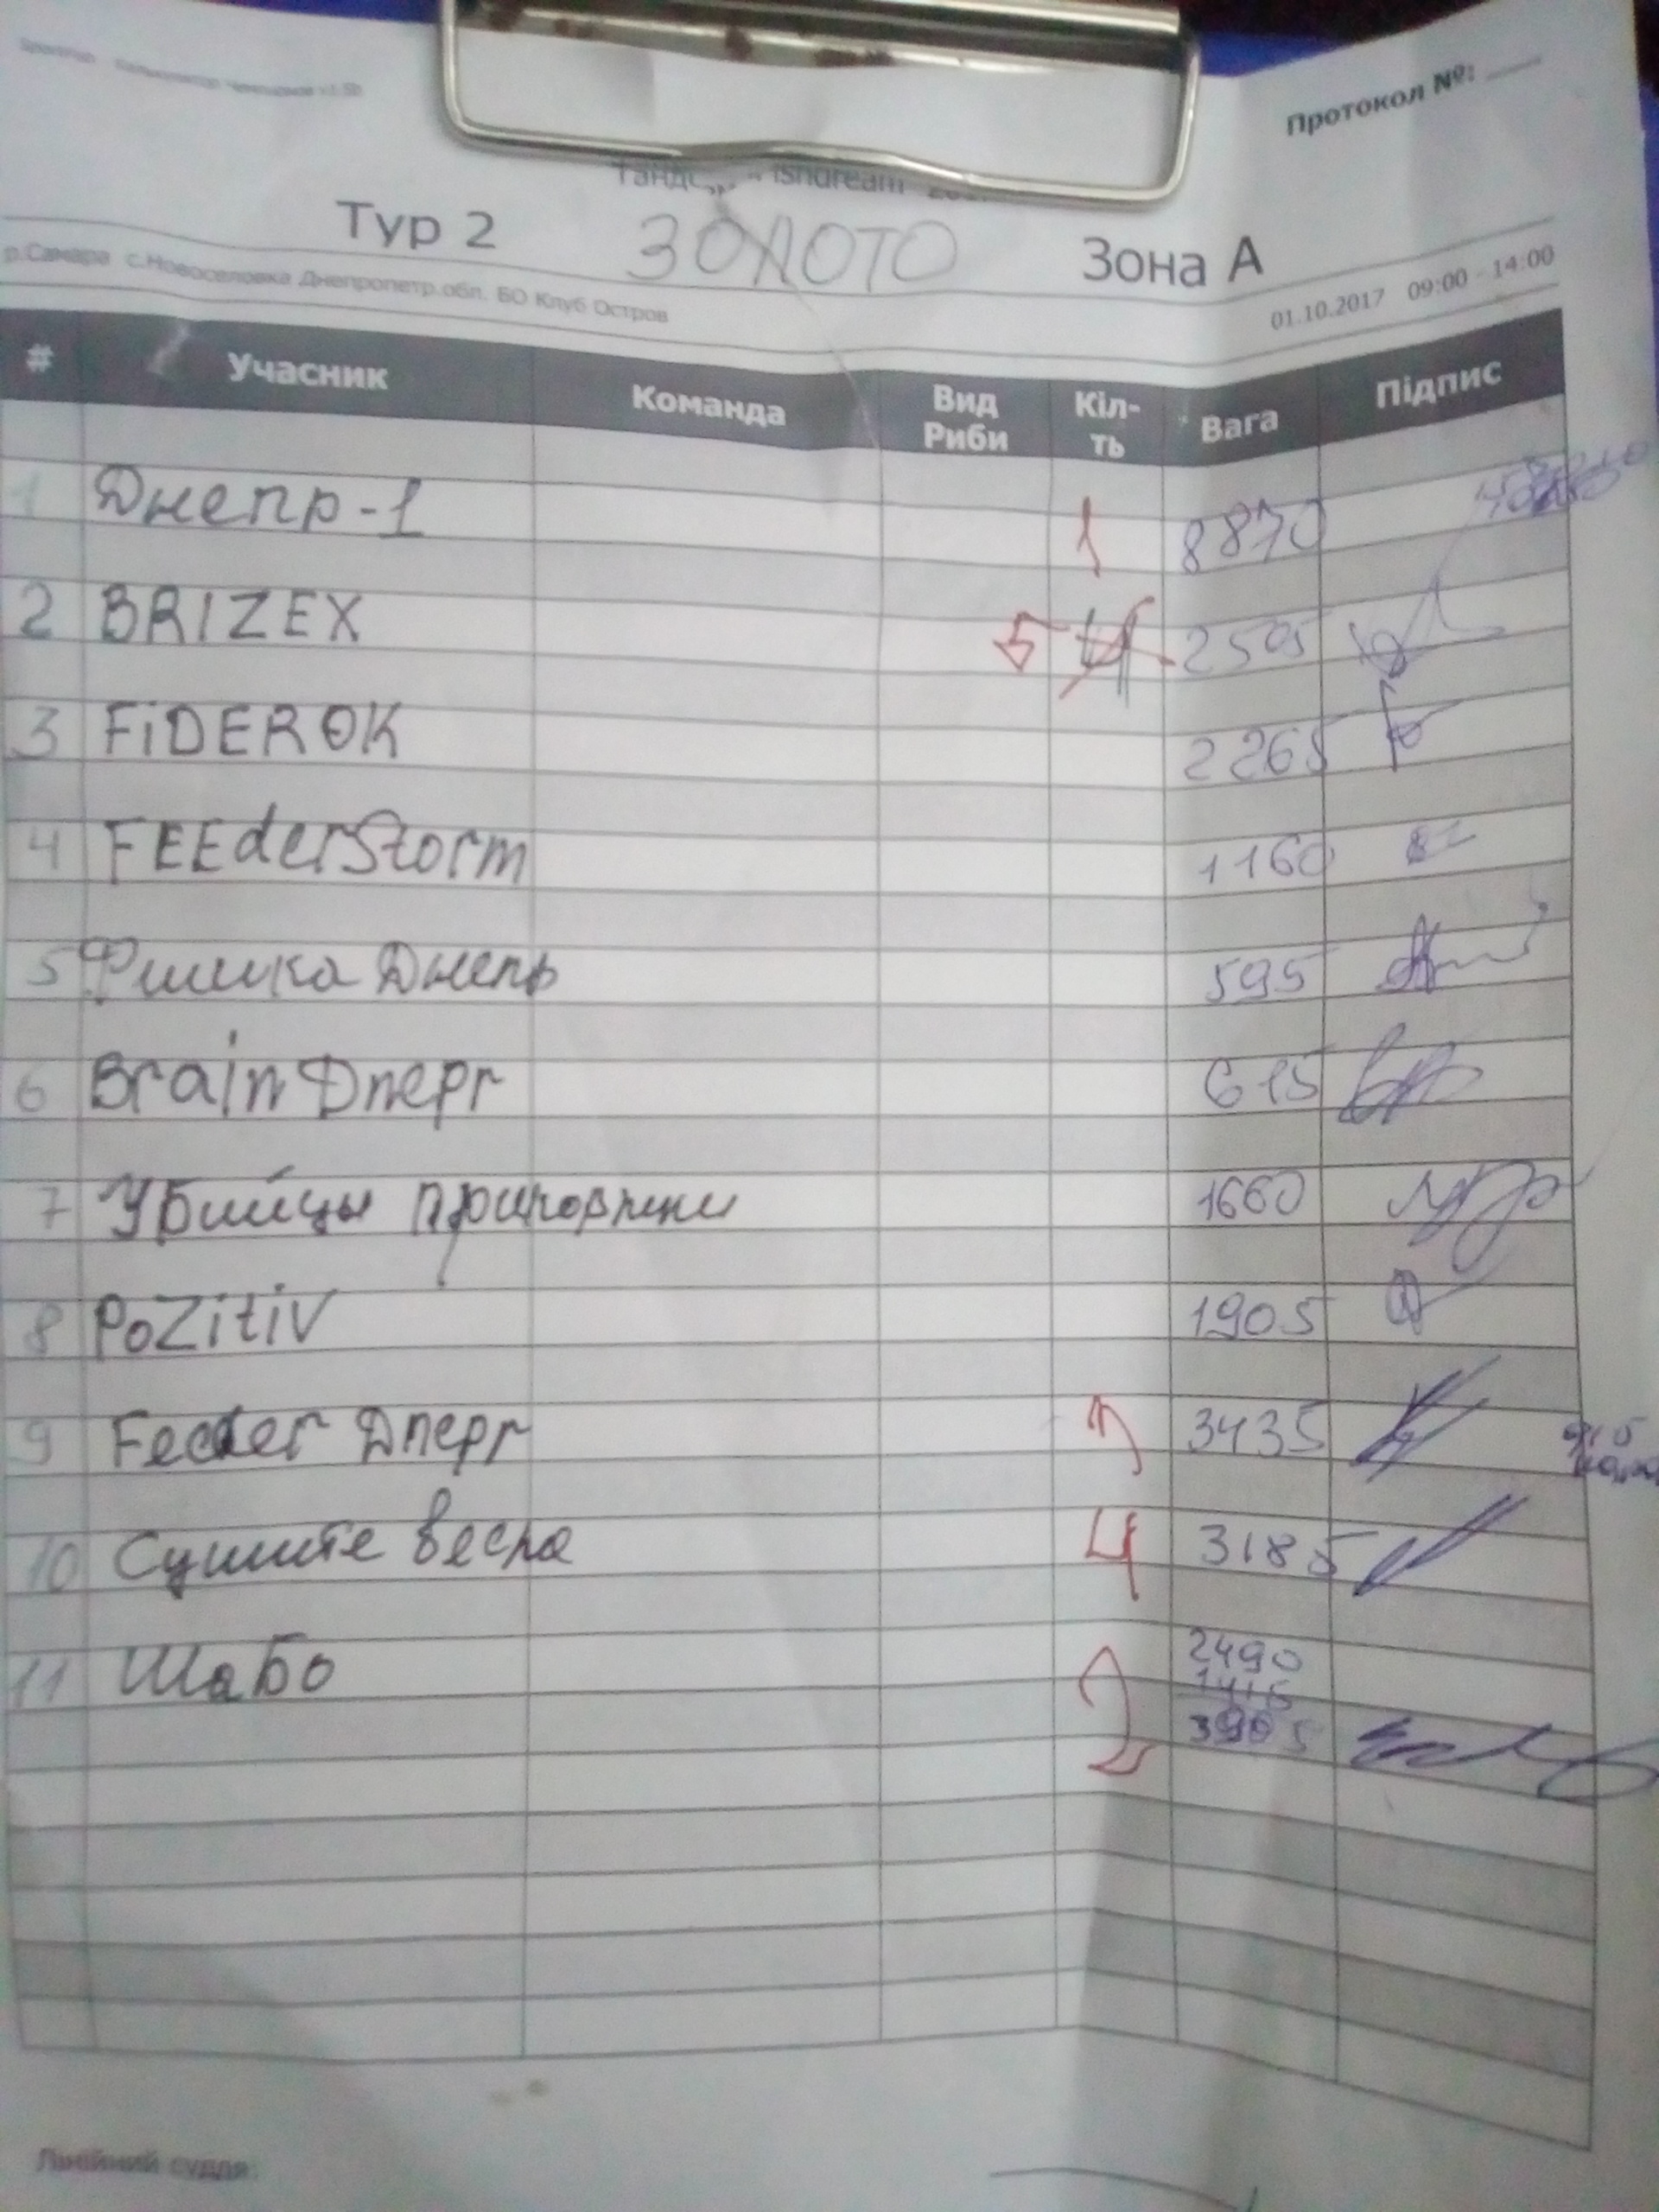 Протокол №:
Тур 2 ЗОЛОТО Зона А
р.Самара с.Новоселовка Днепропетр.обл. БО Клуб Остров
01.10.2017 09:00 - 14:00
# Учасник Команда Вид Риби Кіл-ть Вага Підпис
1 Днепр-1 1 8870
2 BRIZEX 5 4 2505
3 FiDEROK 2265
4 FEEderStorm 1160
5 Фишка Днепр 595
6 Brain Dnepr 615
7 Убийцы прикормки 1660
8 PoZitiV 1905
9 Feeder Dnepr 3 3435
10 Сушите весла 4 3185
11 Шабо 2 2490
1415
3905
Лінійний суддя: